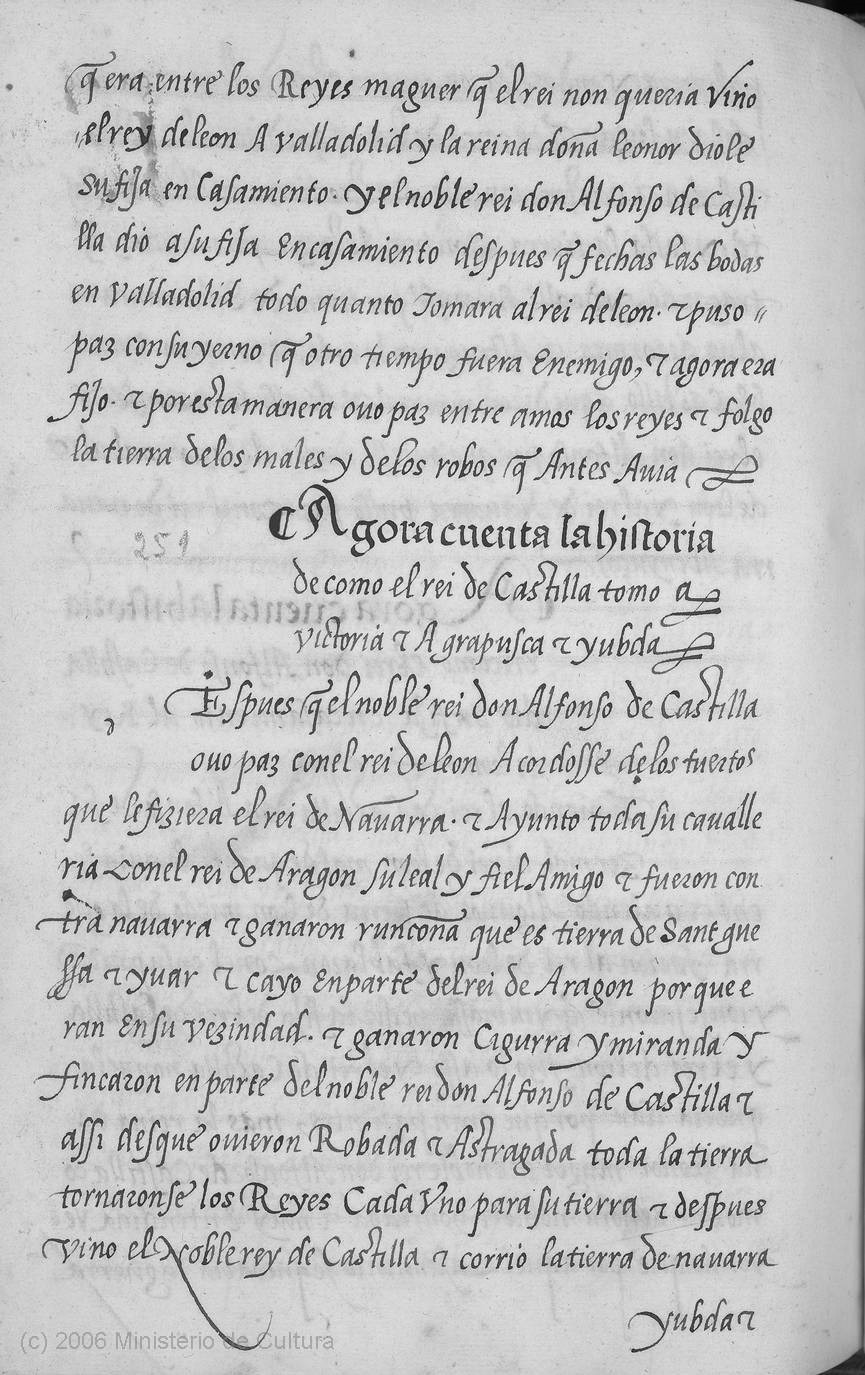 q̃ era entre los Reyes maguer q̃ el rei non queria Vino
el rey de leon A valladolid y la reina doña leonor diole
su fija en Casamiento. y el noble rei don Alfonso de Casti
lla dio a su fija En casamiento despues q̃ fechas las bodas
en valladolid todo quanto Tomara al rei de leon. ⁊ puso
paz con su yerno q̃ otro tiempo fuera Enemigo, ⁊ agora era
fijo. ⁊ por esta manera ouo paz entre amos los reyes ⁊ folgo
la tierra de los males y de los robos q̃ Antes Auia
Agora cuenta la historia
251
de como el rei de Castilla tomo a
victoria ⁊ A grapusca ⁊ yubda
Espues q̃ el noble rei don Alfonso de Castilla
ouo paz con el rei de leon Acordosse de los tuertos
que le fiziera el rei de Nauarra. ⁊ Ayunto toda su caualle
ria con el rei de Aragon su leal y fiel Amigo ⁊ fueron con
tra nauarra ⁊ ganaron runcoña que es tierra de Sant gue
ssa ⁊ yuar ⁊ cayo En parte del rei de Aragon por que e
ran En su vezindad. ⁊ ganaron Cigurra y miranda y
fincaron en parte del noble rei don Alfonso de Castilla ⁊
assi desque ouieron Robada ⁊ Astragada toda la tierra
tornaronse los Reyes Cada Vno para su tierra ⁊ despues
vino el Noble rey de Castilla ⁊ corrio la tierra de nauarra
yubda ⁊
(c) 2006 Ministerio de Cultura